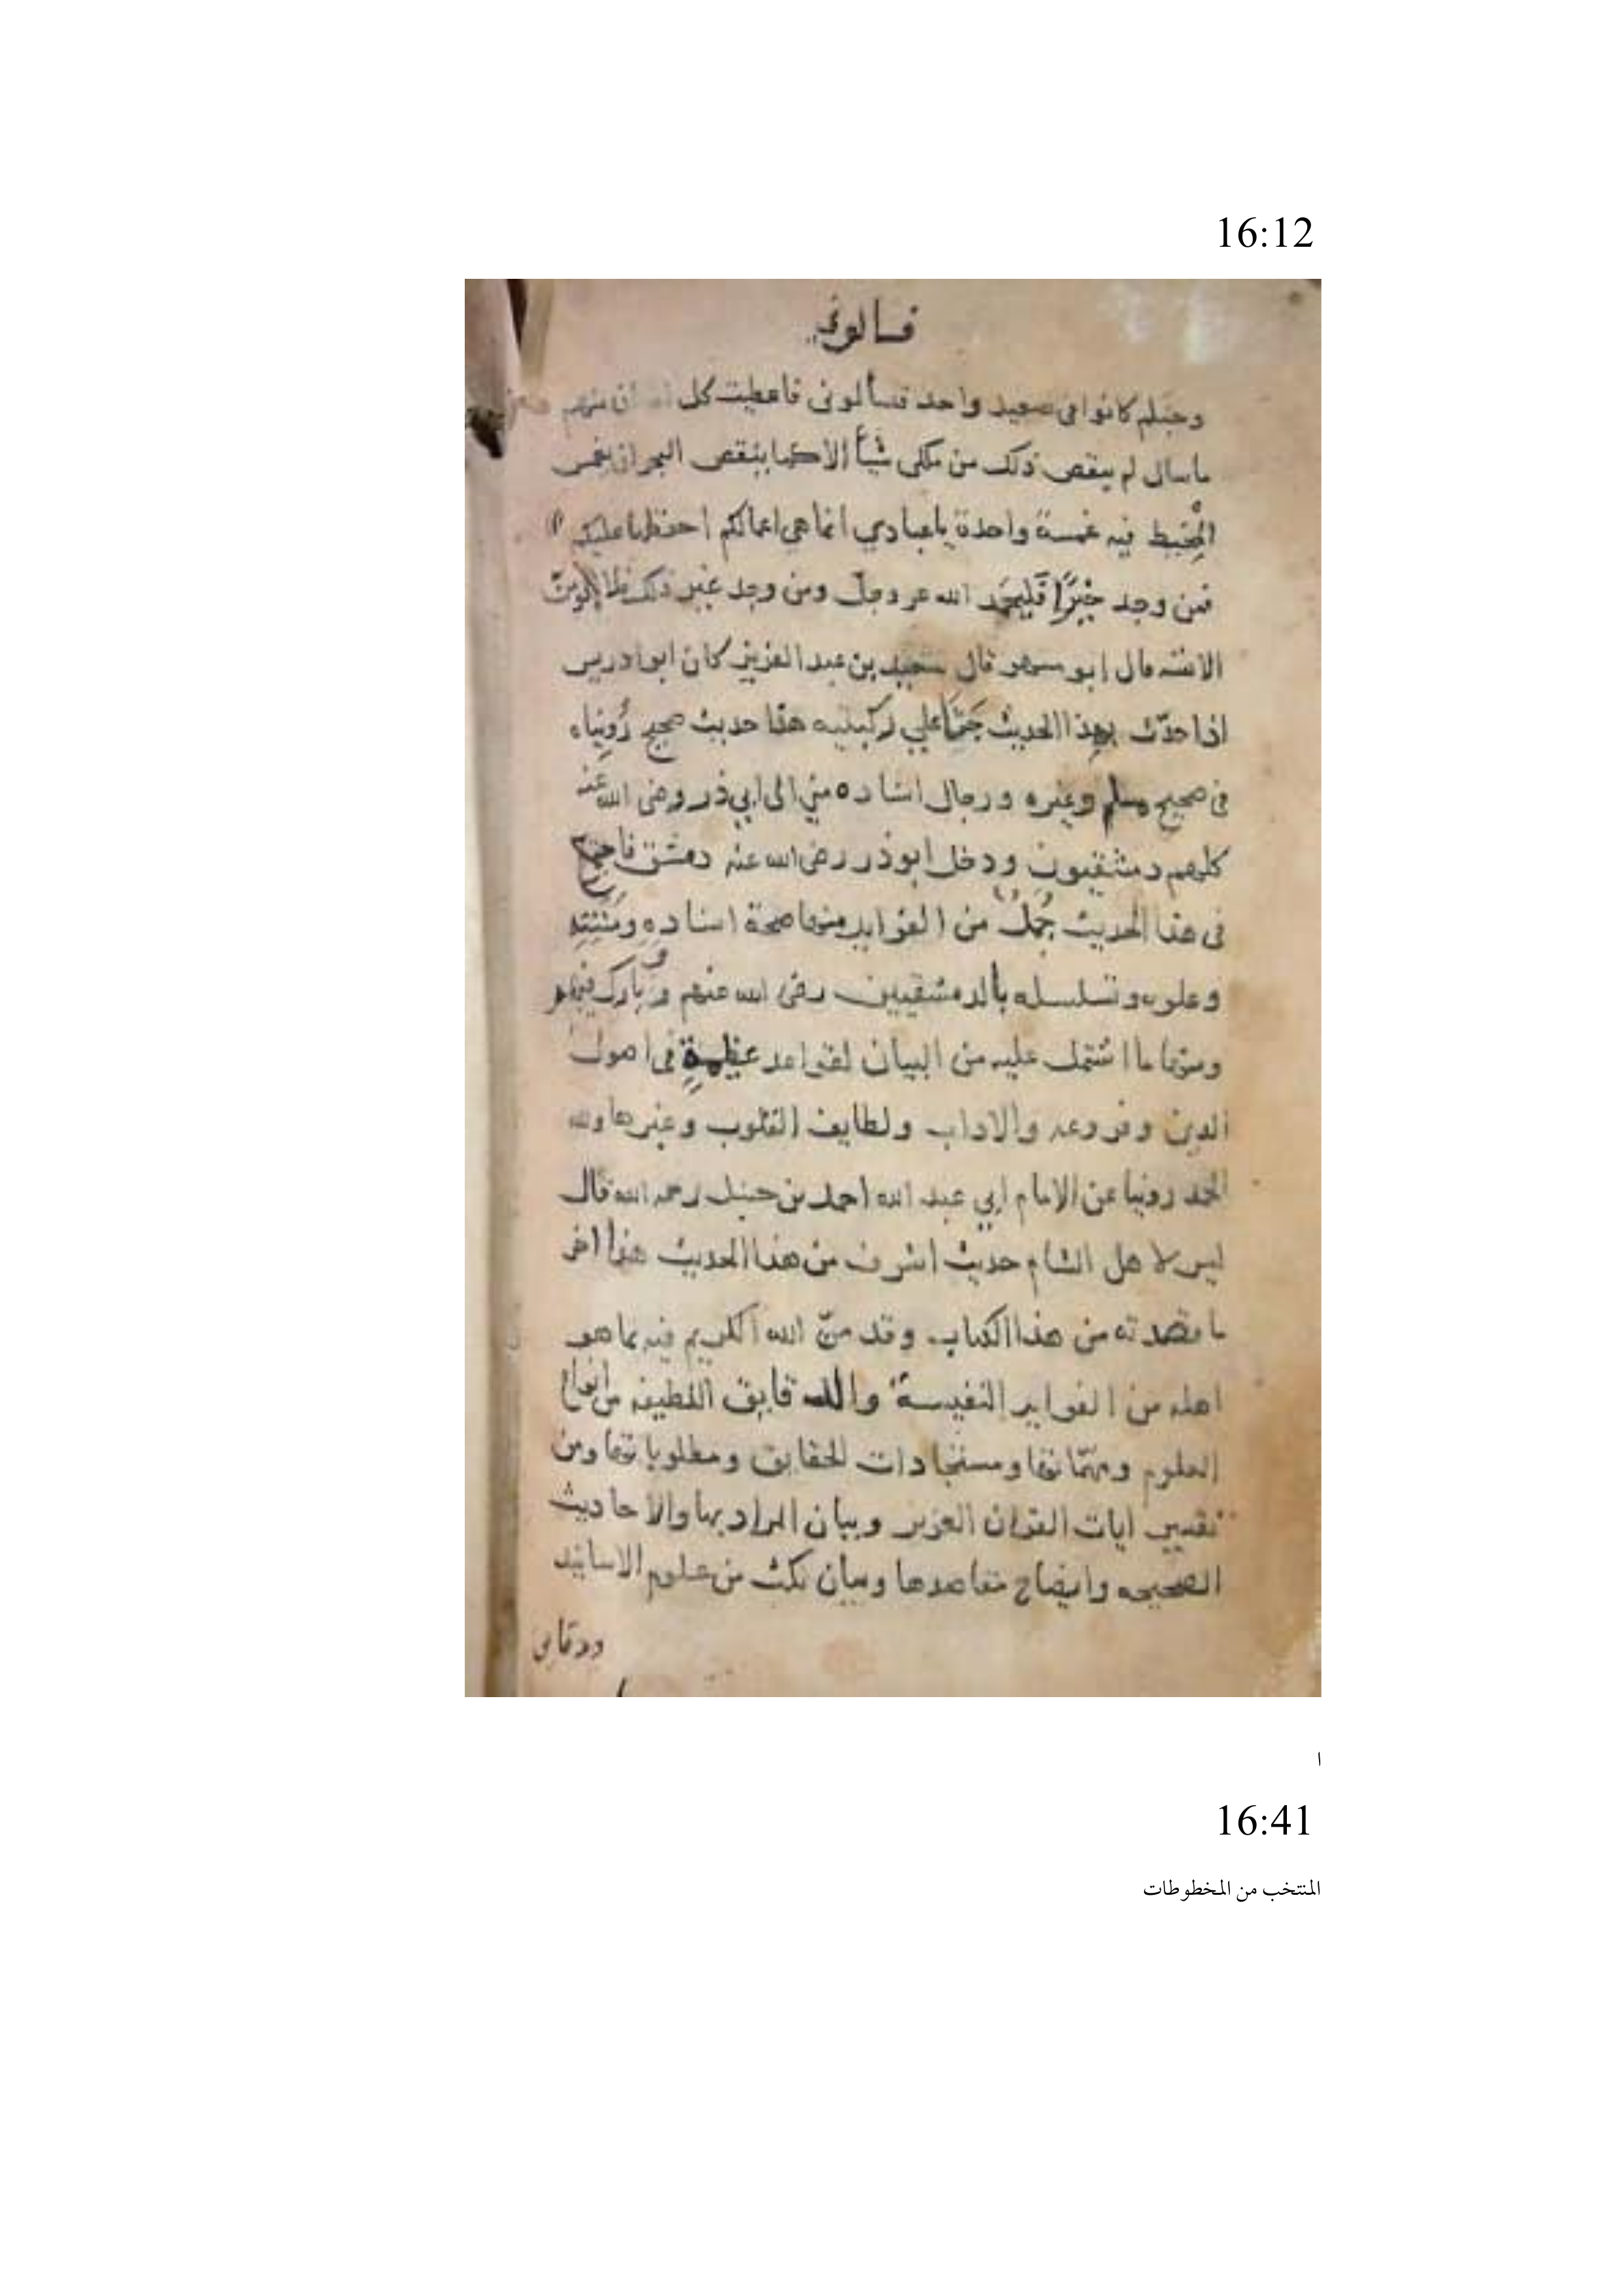 16:12
فسالوني
وجنكم كانوا في صعيد واحد فسألوني فاعطيت كل منهم
ما سال لم ينقص ذلك من ملكي شيأ الا كما ينقص البحر ان يغمس
المخيط فيه غمسة واحدة يا عبادي انما هي اعمالكم احفظها عليكم
فمن وجد خيرًا فليحمد الله عز وجل ومن وجد غير ذلك فلا يلومنّ
الا نفسه قال ابو مسهر قال سعيد بن عبد العزيز كان ابو ادريس
اذا حدّث بهذا الحديث جثا علي ركبتيه هذا حديث صحيح رُوِيناه
في صحيح مسلم وغيره ورجال اسناده مني الى ابي ذر رضى الله عنه
كلهم دمشقيون ودخل ابو ذر رضى الله عنه دمشق فاجتمع
في هذا الحديث جُمَلٌ من الفوايد منها صحة اسنادِهِ ومتنِهِ
وعلوه وتسلسله بالدمشقيين رضى الله عنهم وبارك فيهم
ومنها ما اشتمل عليه من البيان لقواعد عظيمةٍ في اصول
الدين وفروعه والاداب ولطايف القلوب وغيرها ولله
الحمد روينا عن الامام ابي عبد الله احمد بن حنبل رحمه الله قال
ليس لاهل الشام حديث اشرف من هذا الحديث هذا اخر
ما قصدته من هذا الكتاب وقد منّ الله الكريم فيه بما هو
اهله من الفوايد النفيسة والدقايق اللطيفه من انواع
العلوم ومهمّاتها ومستجادات الحقايق ومطلوباتها ومن
تفسير ايات القران العزيز وبيان المراد بها والاحاديث
الصحيحه وايضاح مقاصدها وبيان نكت من علوم الاسانيد
ودقايق
ا
16:41
المنتخب من المخطوطات